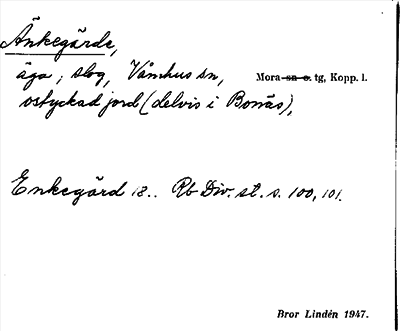 Änkegärde,
äga, skog, Våmhus sn, Mora sn o. tg, Kopp. l.
ostyckad jord (delvis i Bonäs),
Enkegärd 18.. Rb Div. st. s. 100, 101.
Bror Lindén 1947.